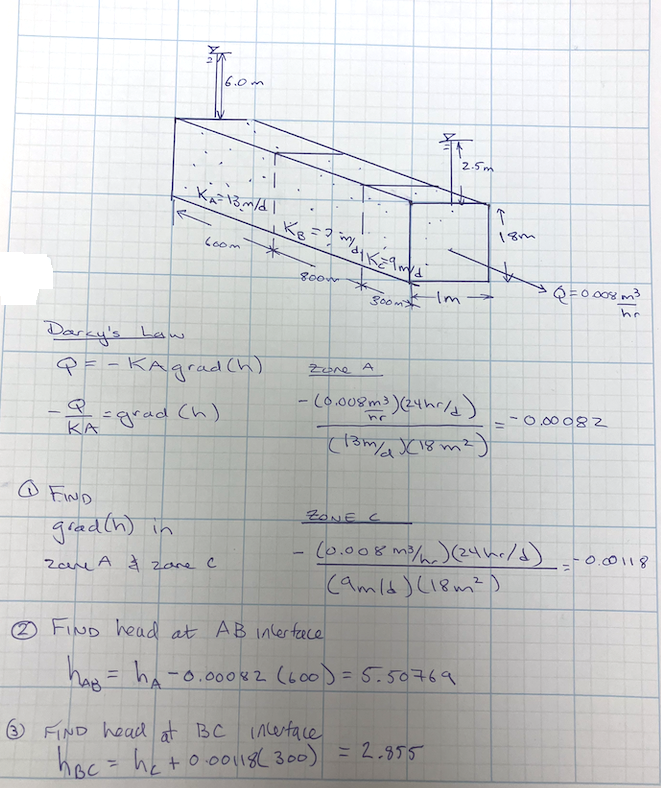 6.0m
2.5m
K_A=13m/d
K_B=? m/d
K_C=9m/d
18m
600m
800m
300m
1m
Q=0.008 m³/hr
Darcy's Law
Q = - KA grad(h)
- Q/KA = grad (h)
Zone A
- (0.008 m³/hr)(24hr/d) / (13m/d)(18m²) = -0.00082
① FIND
grad(h) in
zone A & zone C
ZONE C
- (0.008 m³/hr)(24hr/d) / (9m/d)(18m²) = -0.00118
② FIND head at AB interface
h_AB = h_A - 0.00082 (600) = 5.50769
③ FIND head at BC interface
h_BC = h_C + 0.00118(300) = 2.855